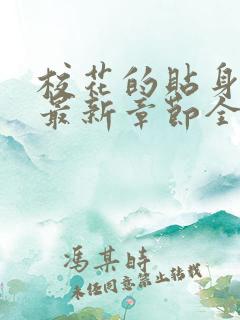 校花的贴身
最新章节全
冯某时
未经同意禁止转载